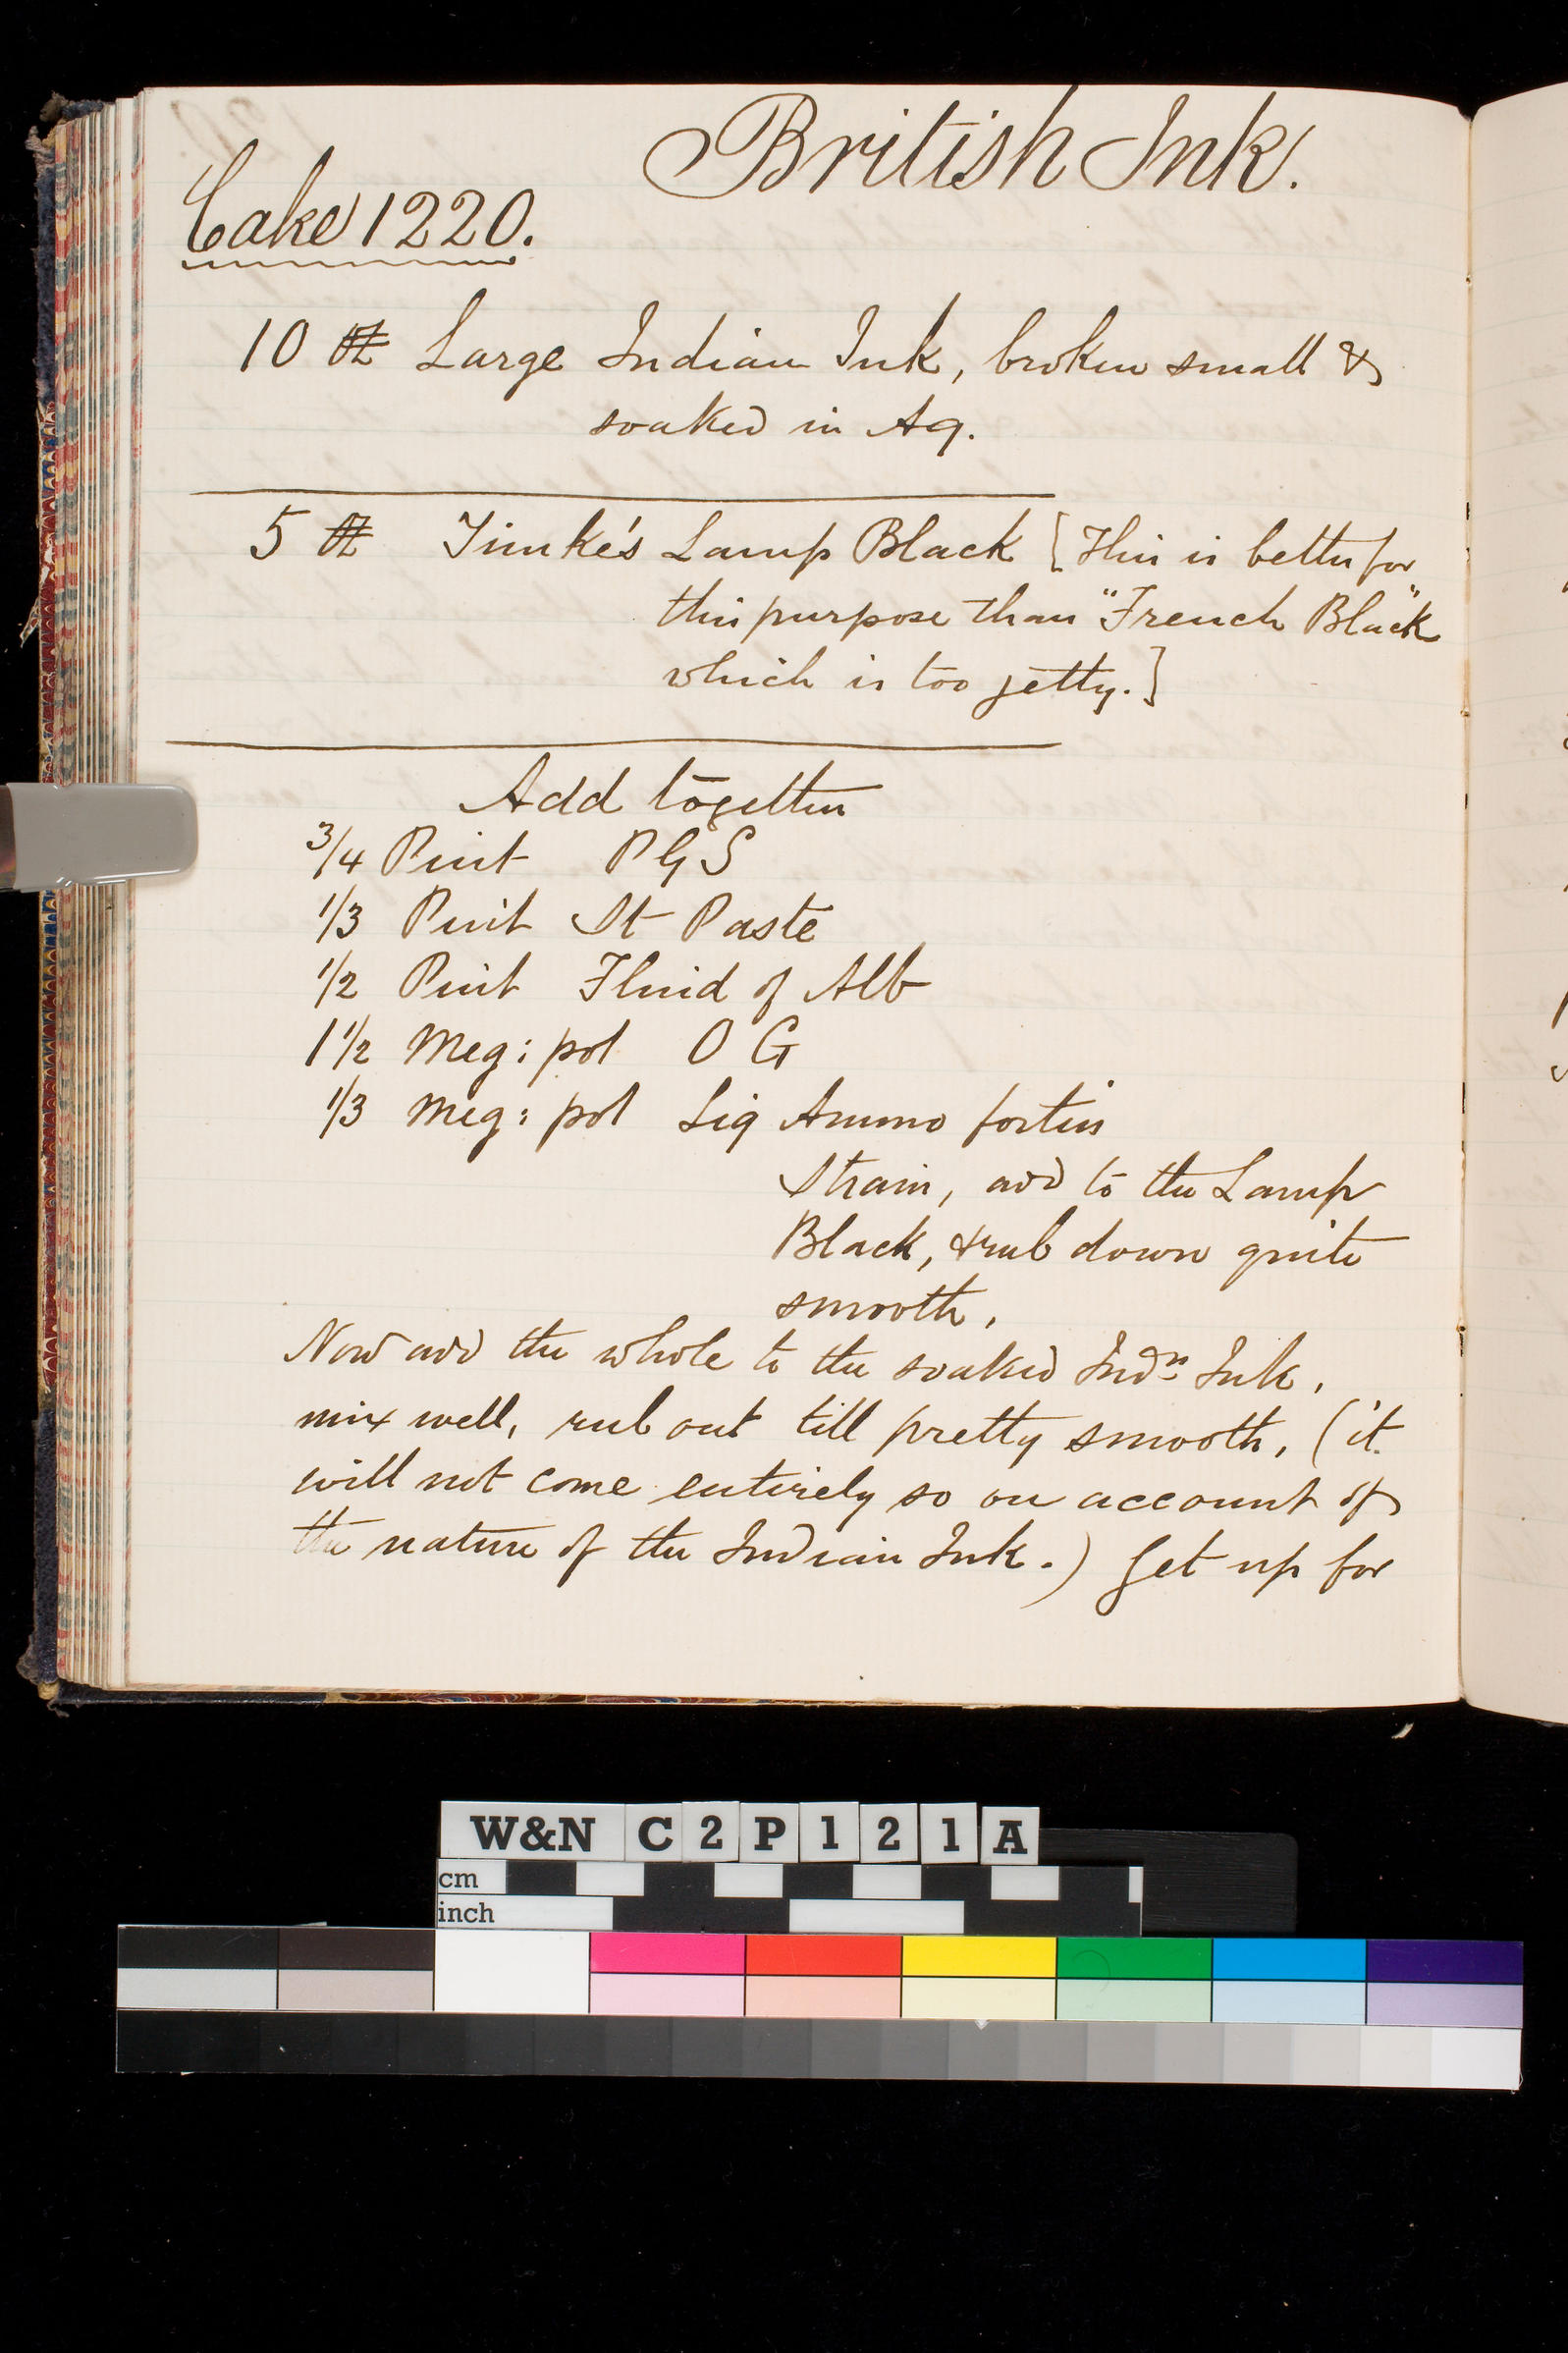 British Ink.
Cake 1220.
10 ℔ Large Indian Ink, broken small &
soaked in Aq.
5 ℔ Timke's Lamp Black [This is better for
this purpose than "French Black"
which is too jetty.]
Add together
3/4 Pint P G S
1/3 Pint St Paste
1/2 Pint Fluid of Alb
1 1/2 Meg: pol O G
1/3 Meg: pol Liq Ammo fortis
Strain, add to the Lamp
Black, & rub down quite
smooth.
Now add the whole to the soaked Indn Ink,
mix well, rub out till pretty smooth, (it
will not come entirely so on account of
the nature of the Indian Ink.) Get up for
W&N C2P121A
cm
inch